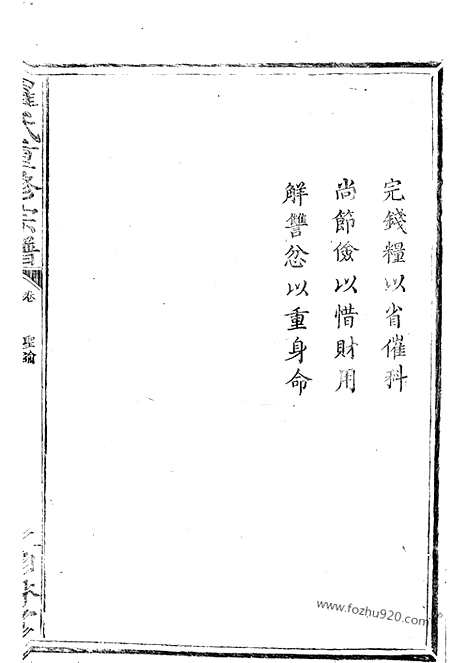 完錢糧以省催科
尚節儉以惜財用
解讐忿以重身命
羅氏重修宗譜
卷
聖諭
www.fozhu920.com